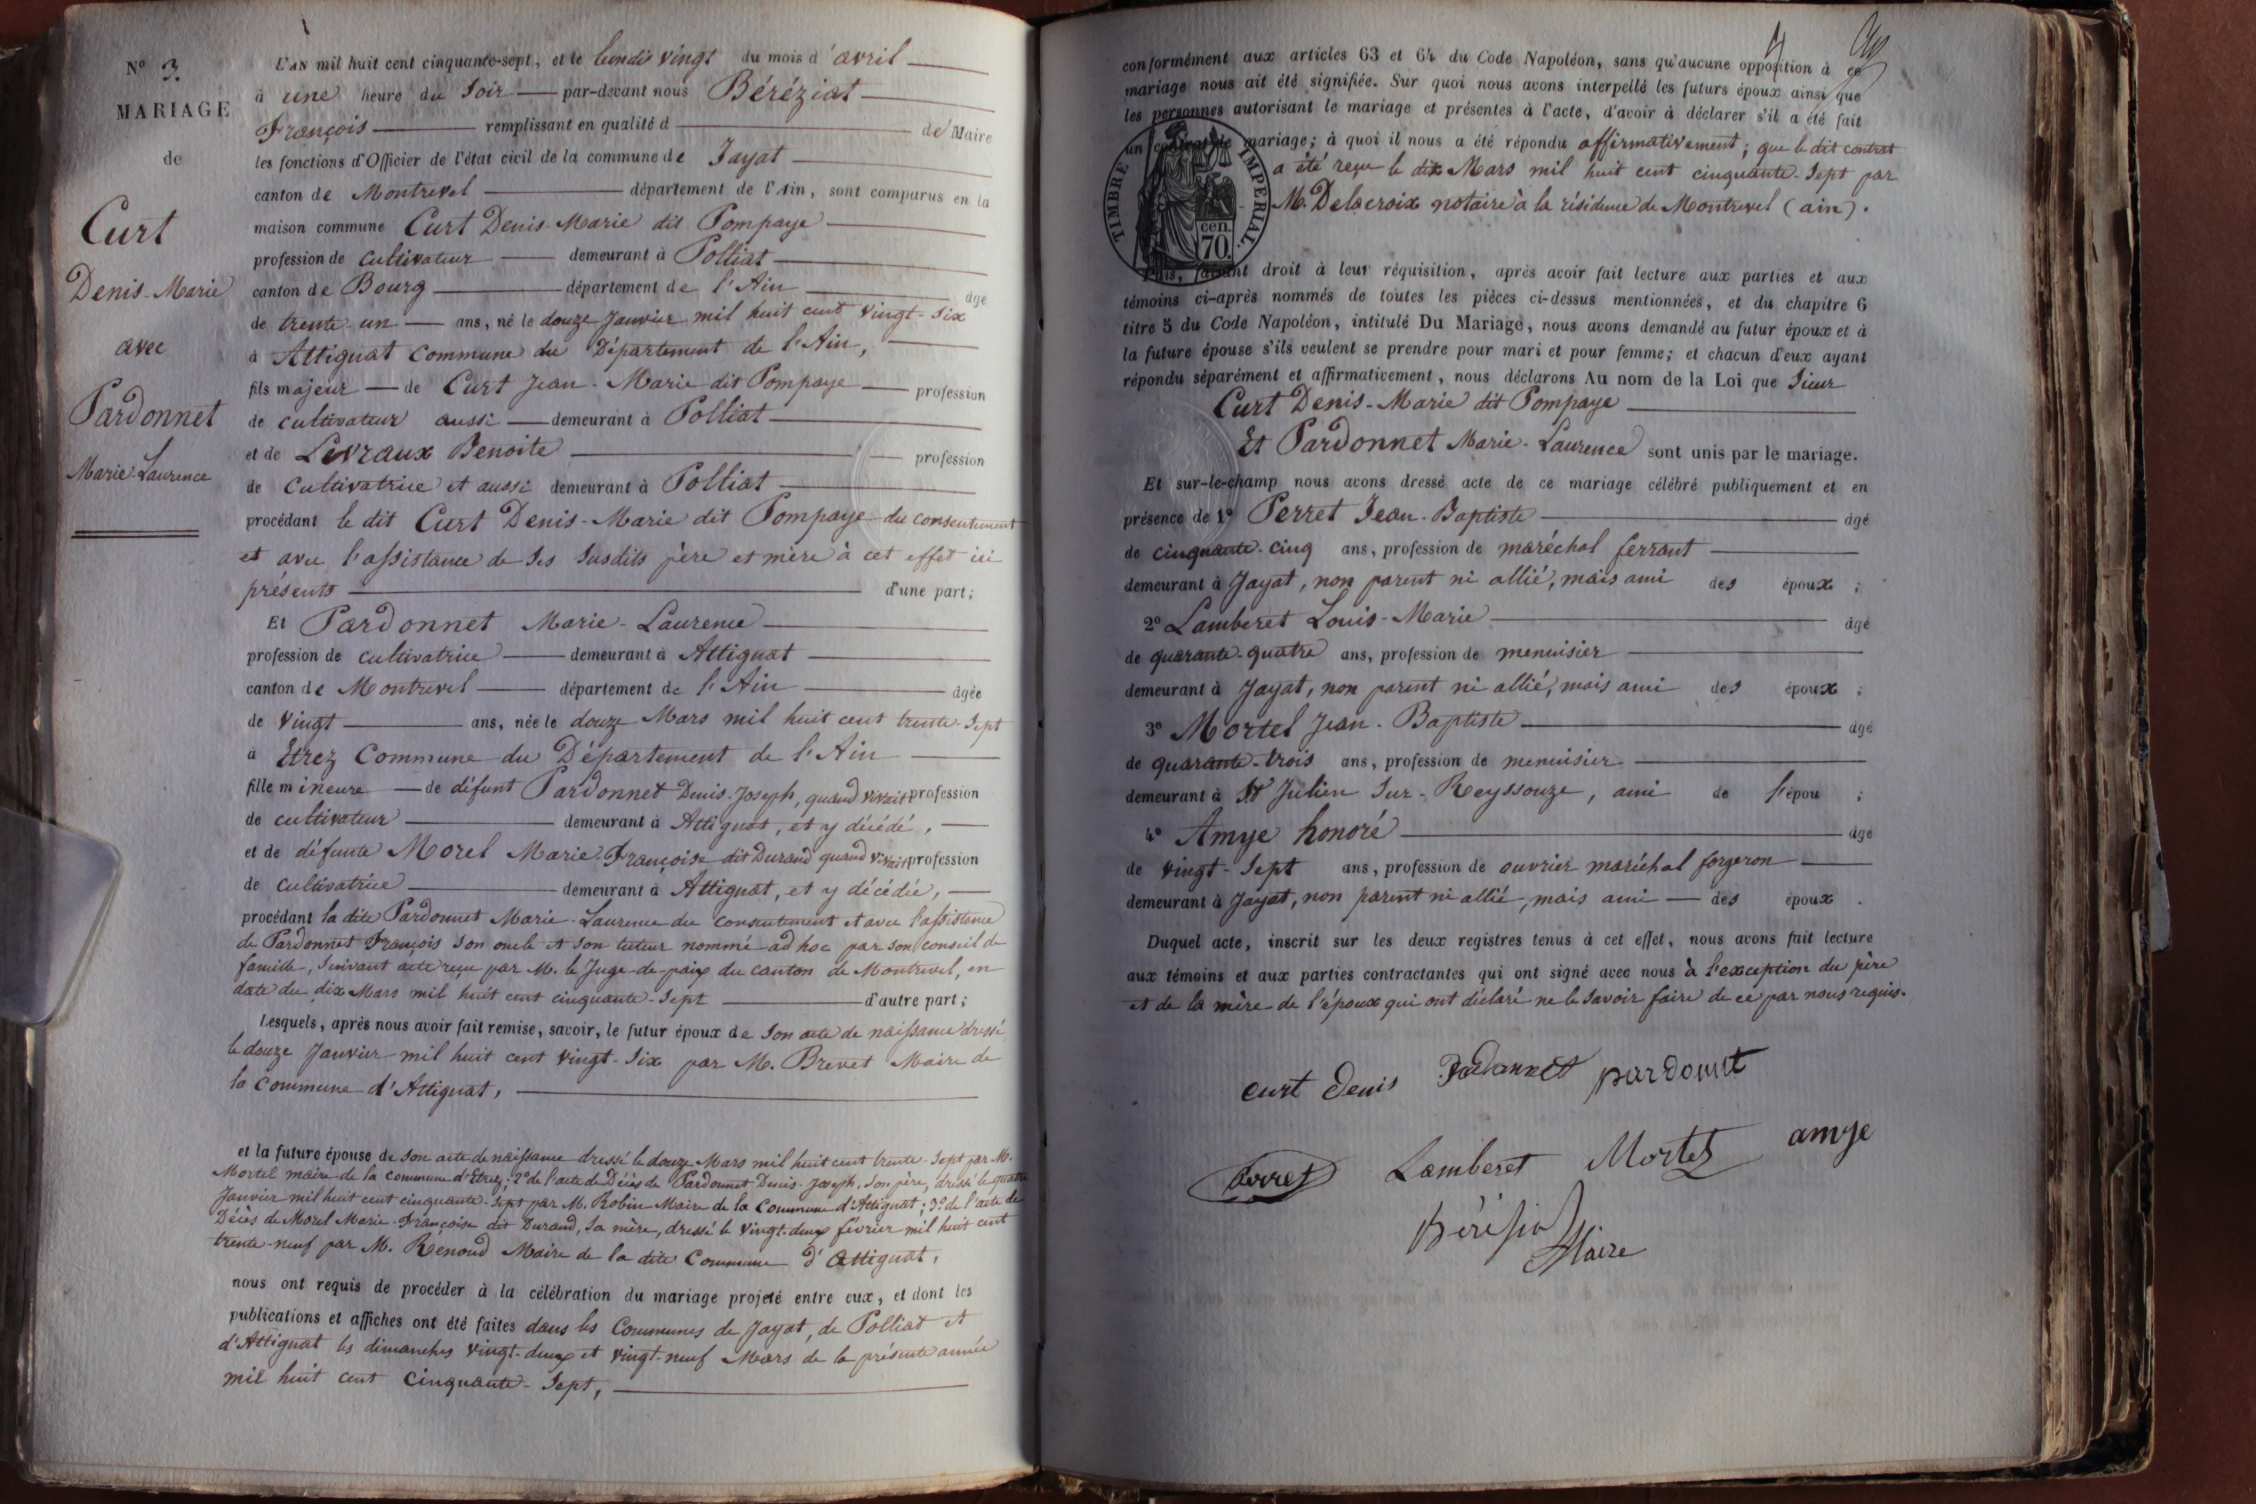 N° 3.
MARIAGE
de
Curt
Denis-Marie
avec
Pardonnet
Marie-Laurence
L'AN mil huit cent cinquante-sept, et le lundi vingt du mois d'avril
à une heure du soir par-devant nous Béréziat
François remplissant en qualité d de Maire
les fonctions d'Officier de l'état civil de la commune de Jayat
canton de Montrevel département de l'Ain, sont comparus en la
maison commune Curt Denis-Marie dit Pompaye
profession de cultivateur demeurant à Polliat
canton de Bourg département de l'Ain âgé
de trente-un ans, né le douze Janvier mil huit cent vingt-six
à Attignat commune du Département de l'Ain,
fils majeur de Curt Jean-Marie dit Pompaye profession
de cultivateur aussi demeurant à Polliat
et de Levraux Benoite profession
de cultivatrice et aussi demeurant à Polliat
procédant le dit Curt Denis-Marie dit Pompaye du consentement
et avec l'assistance de ses susdits père et mère à cet effet ici
présents d'une part;
Et Pardonnet Marie-Laurence
profession de cultivatrice demeurant à Attignat
canton de Montrevel département de l'Ain âgée
de vingt ans, née le douze Mars mil huit cent trente-sept
à Etrez Commune du Département de l'Ain
fille mineure de défunt Pardonnet Denis-Joseph, quand vivait profession
de cultivateur demeurant à Attignat, et y décédé,
et de défunte Morel Marie-Françoise dit Durand quand vivait profession
de cultivatrice demeurant à Attignat, et y décédée,
procédant la dite Pardonnet Marie-Laurence du consentement et avec l'assistance
de Pardonnet François son oncle et son tuteur nommé ad hoc par son conseil de
famille, suivant acte reçu par M. le Juge-de-paix du canton de Montrevel, en
date du dix Mars mil huit cent cinquante-sept d'autre part;
Lesquels, après nous avoir fait remise, savoir, le futur époux de son acte de naissance dressé
le douze Janvier mil huit cent vingt-six par M. Brevet Maire de
la commune d'Attignat,
et la future épouse de son acte de naissance dressé le douze Mars mil huit cent trente-sept par M.
Mortel maire de la commune d'Etrez; 2° de l'acte de Décès de Pardonnet Denis-Joseph, son père, dressé le quatre
Janvier mil huit cent cinquante-sept par M. Robin Maire de la Commune d'Attignat; 3° de l'acte de
Décès de Morel Marie-Françoise dit Durand, sa mère, dressé le vingt-deux février mil huit cent
trente-neuf par M. Rénoud Maire de la dite Commune d'Attignat,
nous ont requis de procéder à la célébration du mariage projeté entre eux, et dont les
publications et affiches ont été faites dans les Communes de Jayat, de Polliat et
d'Attignat les dimanches vingt-deux et vingt-neuf Mars de la présente année
mil huit cent cinquante-sept,
conformément aux articles 63 et 64 du Code Napoléon, sans qu'aucune opposition à ce
mariage nous ait été signifiée. Sur quoi nous avons interpellé les futurs époux ainsi que
les personnes autorisant le mariage et présentes à l'acte, d'avoir à déclarer s'il a été fait
un contrat de mariage; à quoi il nous a été répondu affirmativement; que le dit contrat
a été reçu le dix Mars mil huit cent cinquante-sept par
M. Delacroix notaire à la résidence de Montrevel (ain).
TIMBRE IMPERIAL.
cen.
70.
Puis, faisant droit à leur réquisition, après avoir fait lecture aux parties et aux
témoins ci-après nommés de toutes les pièces ci-dessus mentionnées, et du chapitre 6
titre 5 du Code Napoléon, intitulé Du Mariage, nous avons demandé au futur époux et à
la future épouse s'ils veulent se prendre pour mari et pour femme; et chacun d'eux ayant
répondu séparément et affirmativement, nous déclarons Au nom de la Loi que sieur
Curt Denis-Marie dit Pompaye
Et Pardonnet Marie-Laurence sont unis par le mariage.
Et sur-le-champ nous avons dressé acte de ce mariage célébré publiquement et en
présence de 1° Perret Jean-Baptiste âgé
de cinquante-cinq ans, profession de maréchal ferrant
demeurant à Jayat, non parent ni allié, mais ami des époux ;
2° Lamberet Louis-Marie âgé
de quarante-quatre ans, profession de menuisier
demeurant à Jayat, non parent ni allié, mais ami des époux ;
3° Mortel Jean-Baptiste âgé
de quarante-trois ans, profession de menuisier
demeurant à St Julien sur-Reyssouze, ami de l'épou ;
4° Amye honoré âgé
de vingt-sept ans, profession de ouvrier maréchal forgeron
demeurant à Jayat, non parent ni allié, mais ami des époux .
Duquel acte, inscrit sur les deux registres tenus à cet effet, nous avons fait lecture
aux témoins et aux parties contractantes qui ont signé avec nous à l'exception du père
et de la mère de l'époux qui ont déclaré ne le savoir faire de ce par nous requis.
curt denis Pardonnet pardonnet
Perret Lamberet Mortel amye
Béréziat
Maire